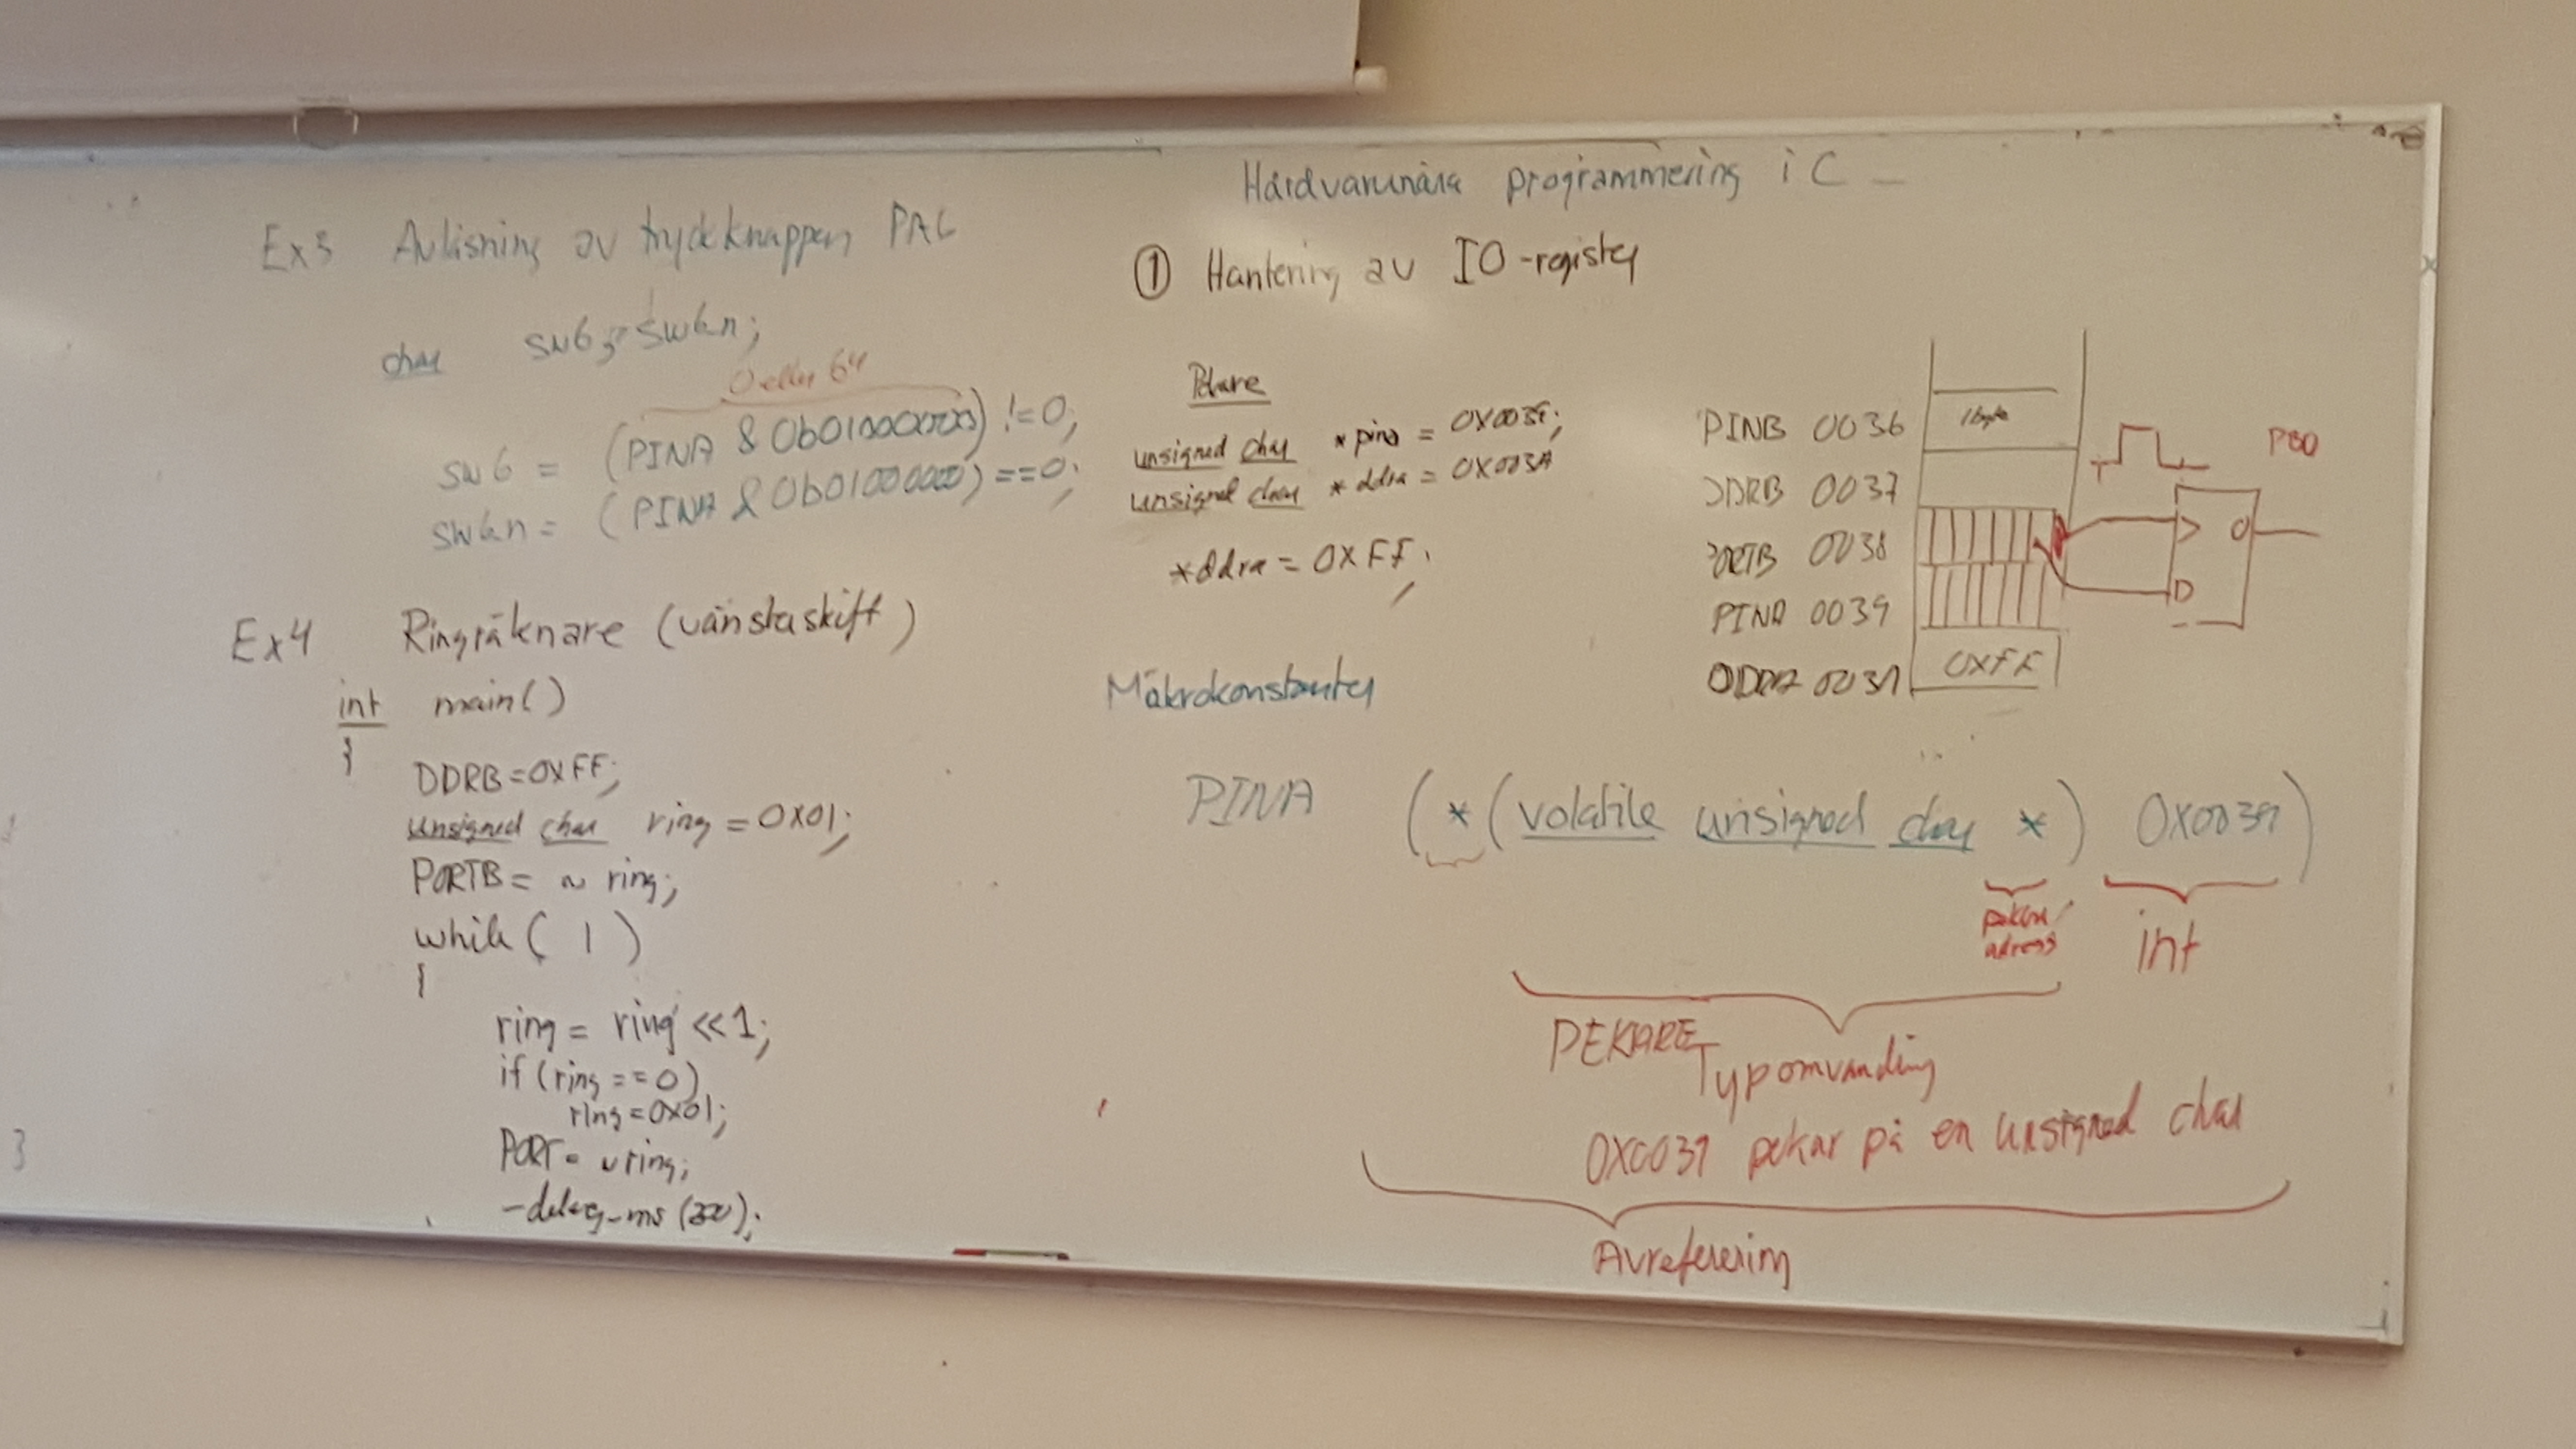 Ex3 Avläsning av tryckknappen PA6
char sw6, sw6n;
0 eller 64
sw6 = (PINA & 0b01000000) != 0;
sw6n = (PINA & 0b01000000) == 0;
Ex4 Ringräknare (vänsterskift)
int main()
{
DDRB = 0XFF;
unsigned char ring = 0X01;
PORTB = ~ ring;
while ( 1 )
{
ring = ring << 1;
if (ring == 0)
ring = 0x01;
PORT = ~ring;
_delay_ms ();
3
Hårdvarunära programmering i C
① Hantering av IO-register
Pekare
unsigned char *pina = 0X0039;
unsigned char *ddra = 0X003A
*ddra = 0XFF;
PINB 0036 1 byte
DDRB 0037
PORTB 0038
PINA 0039
DDRA 003A 0XFF
PB0
Q
D
Makrokonstanter
PINA (*(volatile unsigned char *) 0X0039)
pekare/
adress
int
PEKARE
Typomvandling
0X0039 pekar på en unsigned char
Avreferering